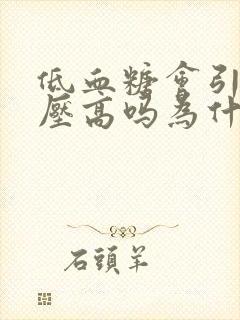 低血糖會引
壓高吗為什
石頭羊